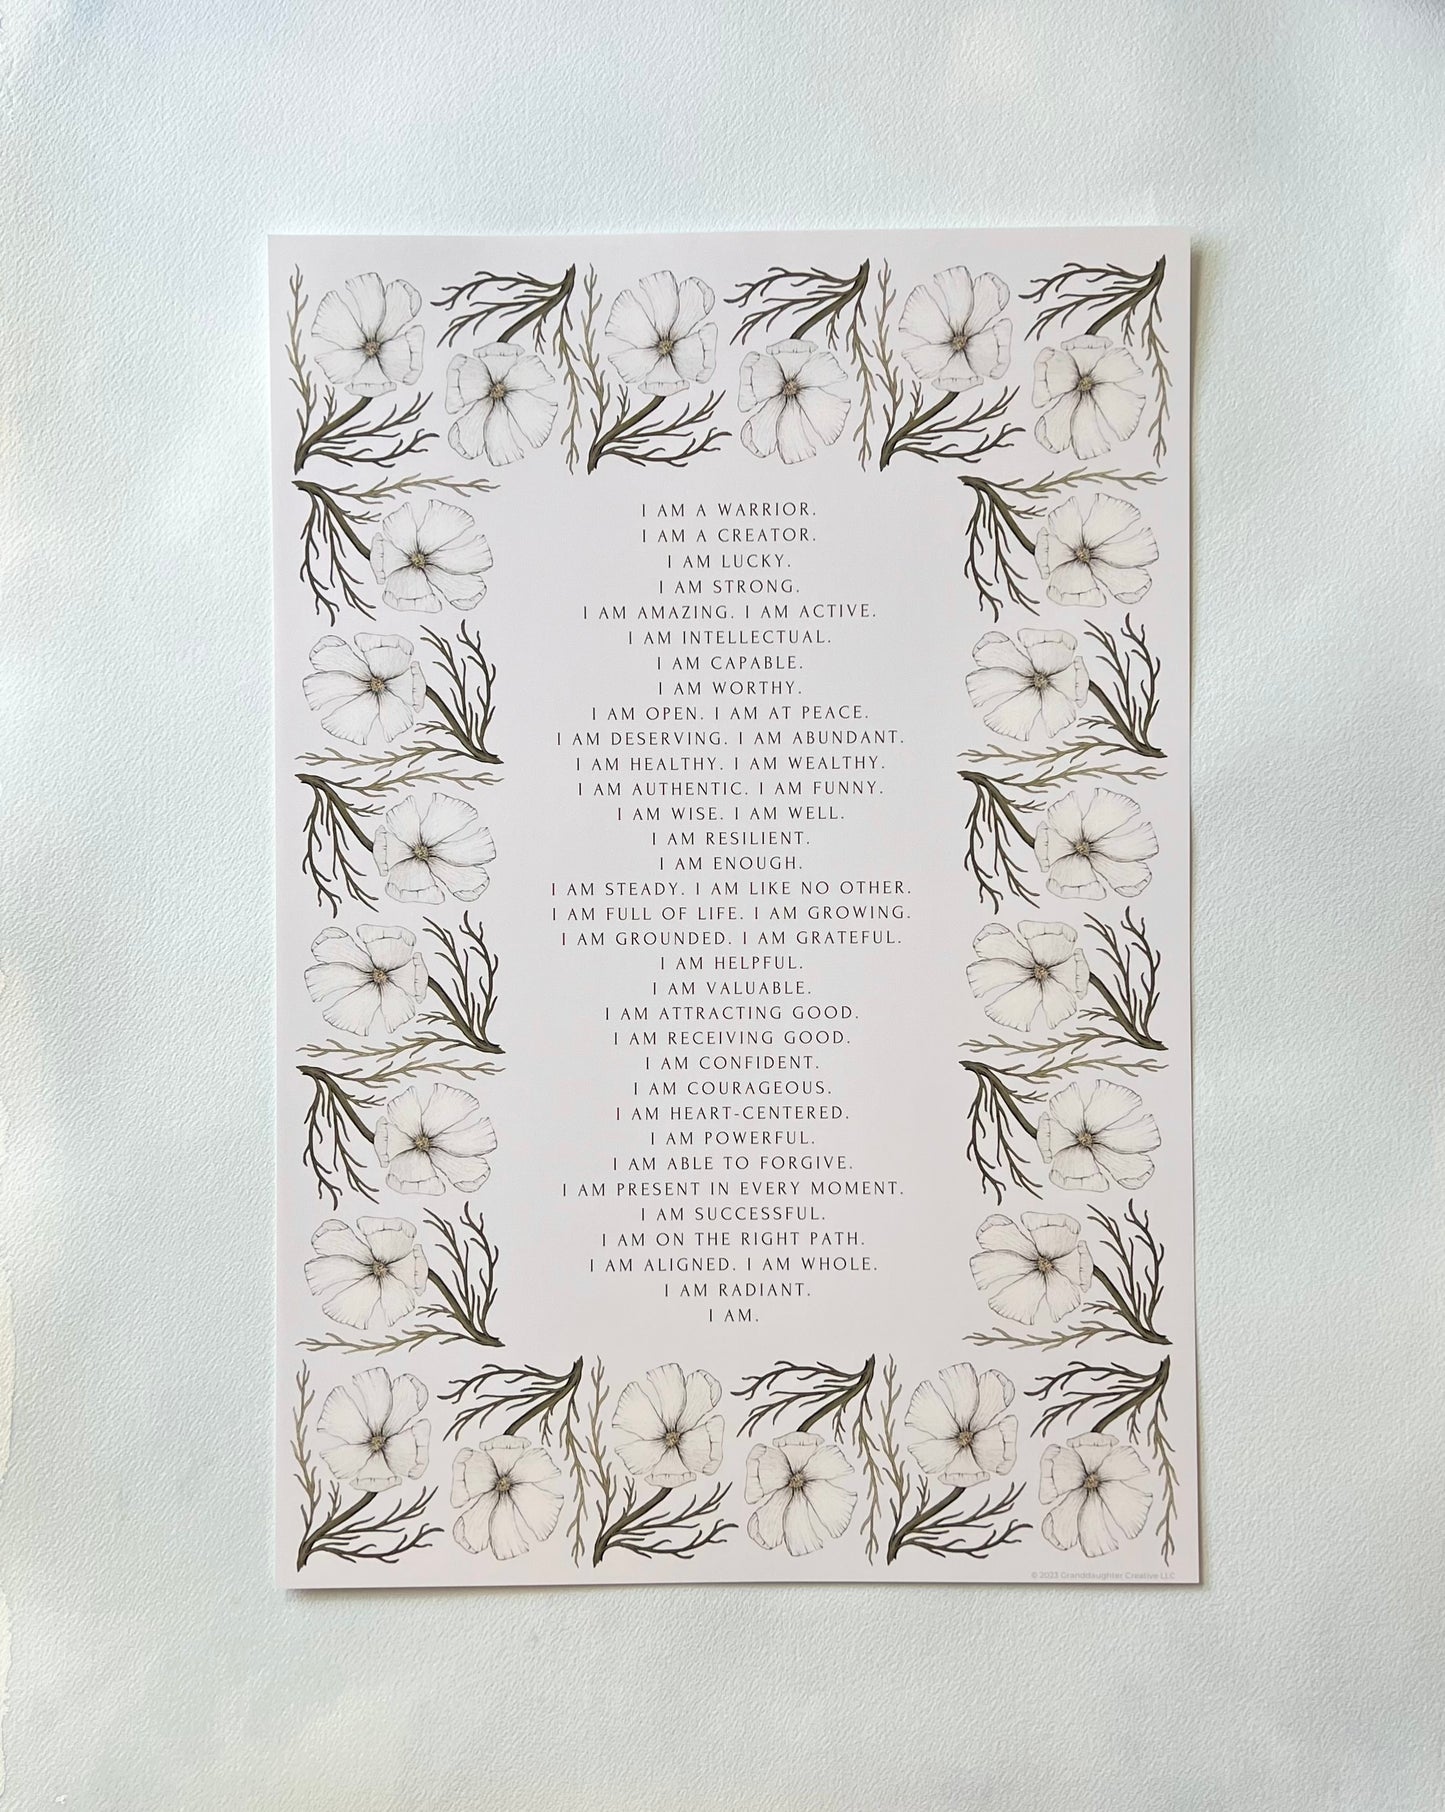 I AM A WARRIOR.
I AM A CREATOR.
I AM LUCKY.
I AM STRONG.
I AM AMAZING. I AM ACTIVE.
I AM INTELLECTUAL.
I AM CAPABLE.
I AM WORTHY.
I AM OPEN. I AM AT PEACE.
I AM DESERVING. I AM ABUNDANT.
I AM HEALTHY. I AM WEALTHY.
I AM AUTHENTIC. I AM FUNNY.
I AM WISE. I AM WELL.
I AM RESILIENT.
I AM ENOUGH.
I AM STEADY. I AM LIKE NO OTHER.
I AM FULL OF LIFE. I AM GROWING.
I AM GROUNDED. I AM GRATEFUL.
I AM HELPFUL.
I AM VALUABLE.
I AM ATTRACTING GOOD.
I AM RECEIVING GOOD.
I AM CONFIDENT.
I AM COURAGEOUS.
I AM HEART-CENTERED.
I AM POWERFUL.
I AM ABLE TO FORGIVE.
I AM PRESENT IN EVERY MOMENT.
I AM SUCCESSFUL.
I AM ON THE RIGHT PATH.
I AM ALIGNED. I AM WHOLE.
I AM RADIANT.
I AM.
© 2023 Granddaughter Creative LLC